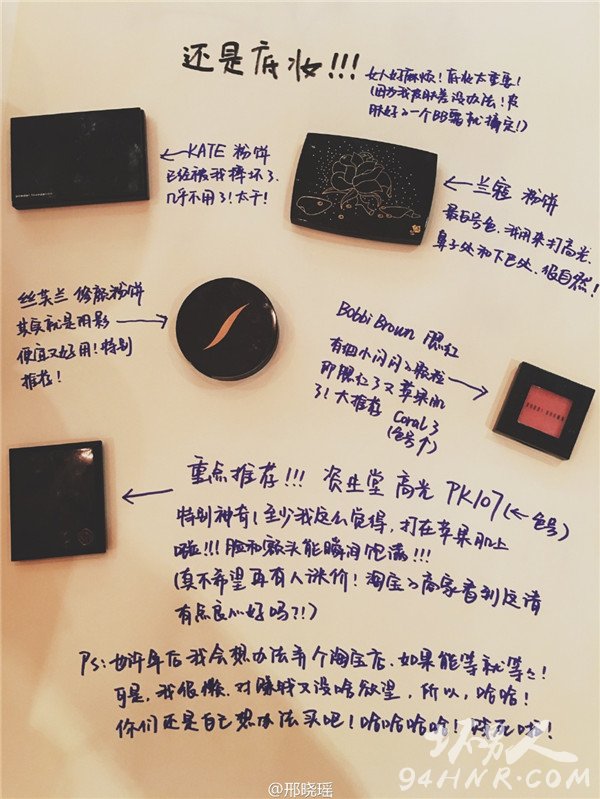 还是底妆!!!
女人好麻烦!底妆太重要!
(因为我皮肤差没办法!皮
肤好的一个BB霜就搞定!)
←KATE 粉饼
已经被我摔坏了
几乎不用了!太干!
←兰蔻 粉饼
最白号色,我用来打高光
鼻子处和下巴处,很自然!
丝芙兰 修颜粉饼
其实就是阴影→
便宜又好用!特别
推荐!
Bobbi Brown 腮红
有细小闪闪的颗粒→
即腮红了又苹果肌
了!大推荐 Coral 3
(色号↑)
BOBBI BROWN
←重点推荐!!! 资生堂 高光 PK107(←色号)
特别神奇(至少我这么觉得,打在苹果肌上
啦!!!脸和额头能瞬间饱满!!!
(真不希望再有人涨价!淘宝的商家看到这请
有点良心好吗?!)
Ps:也许年后我会想办法弄个淘宝店,如果能等就等等!
可是,我很懒,对赚钱又没啥欲望,所以,哈哈!
你们还是自己想办法买吧!哈哈哈哈!
@邢晓瑶
94HNR.COM